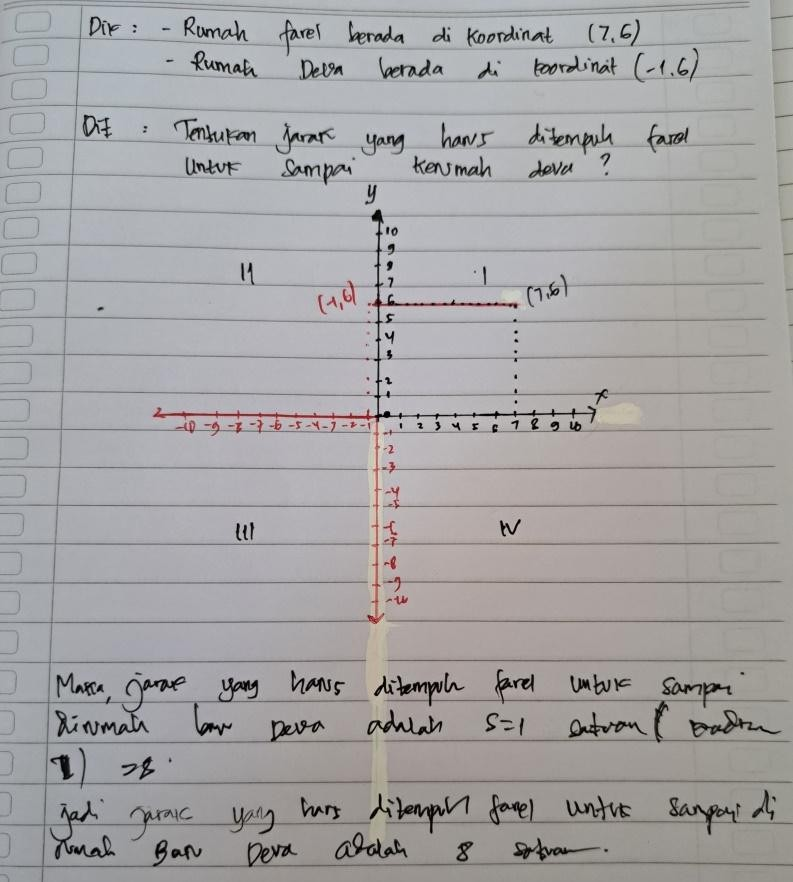 Dik : - Rumah farel berada di koordinat (7,6)
- Rumah Deva berada di koordinat (-1.6)
Dit : Tentukan jarak yang harus ditempuh farel
Untuk Sampai kerumah deva ?
y
10
9
8
7
6
5
4
3
2
1
II
I
(-1,6)
(7,6)
x
-10 -9 -8 -7 -6 -5 -4 -3 -2 -1
1 2 3 4 5 6 7 8 9 10
-1
-2
-3
-4
-5
-6
-7
-8
-9
-10
III
IV
Maka, jarak yang harus ditempuh farel untuk sampai
dirumah Deva adalah S=1 satuan
=8
jadi jarak yang hars ditempuh farel untuk sampai di
rumah Baru Deva adalah 8 satuan.